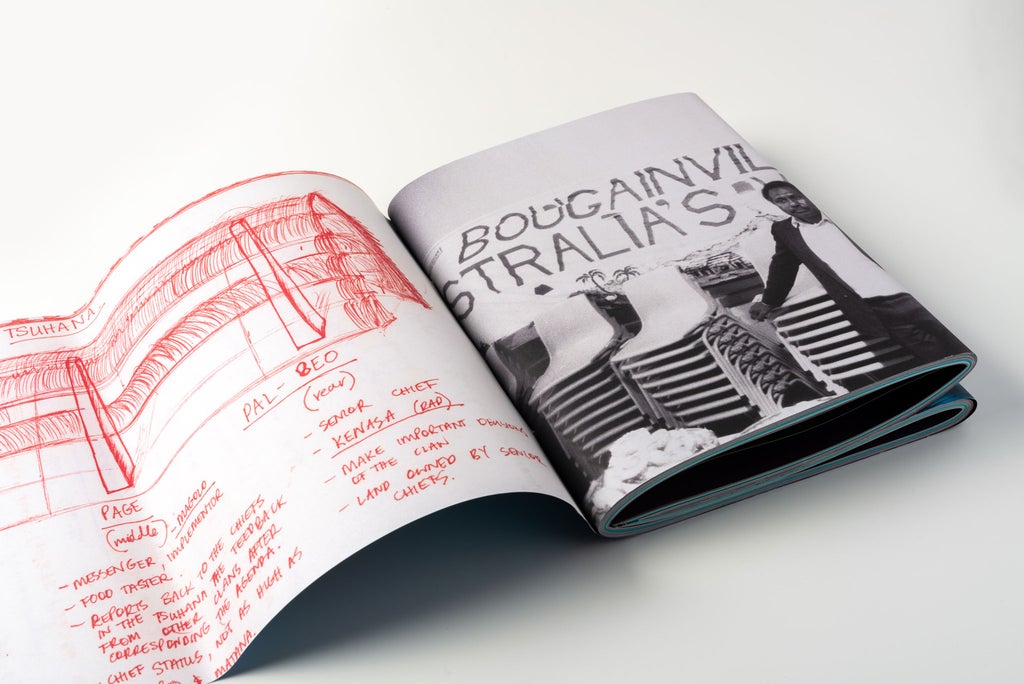 TSUHANA
PAL-BEO
(rear)
- SENIOR CHIEF
- KENASA (RAD)
- MAKE IMPORTANT
OF THE CLAN
- LAND OWNED BY SENIOR
CHIEFS.
PAGE
(middle) - MAGOLO
- MESSENGER, IMPLEMENTOR
- FOOD TASTER.
- REPORTS BACK TO THE CHIEFS
IN THE TSUHANA THE FEEDBACK
FROM OTHER CLANS AFTER
CORRESPONDING THE AGENDA.
CHIEF STATUS, NOT AS HIGH AS
& MATANA.
BOUGAINVIL
STRALIA'S